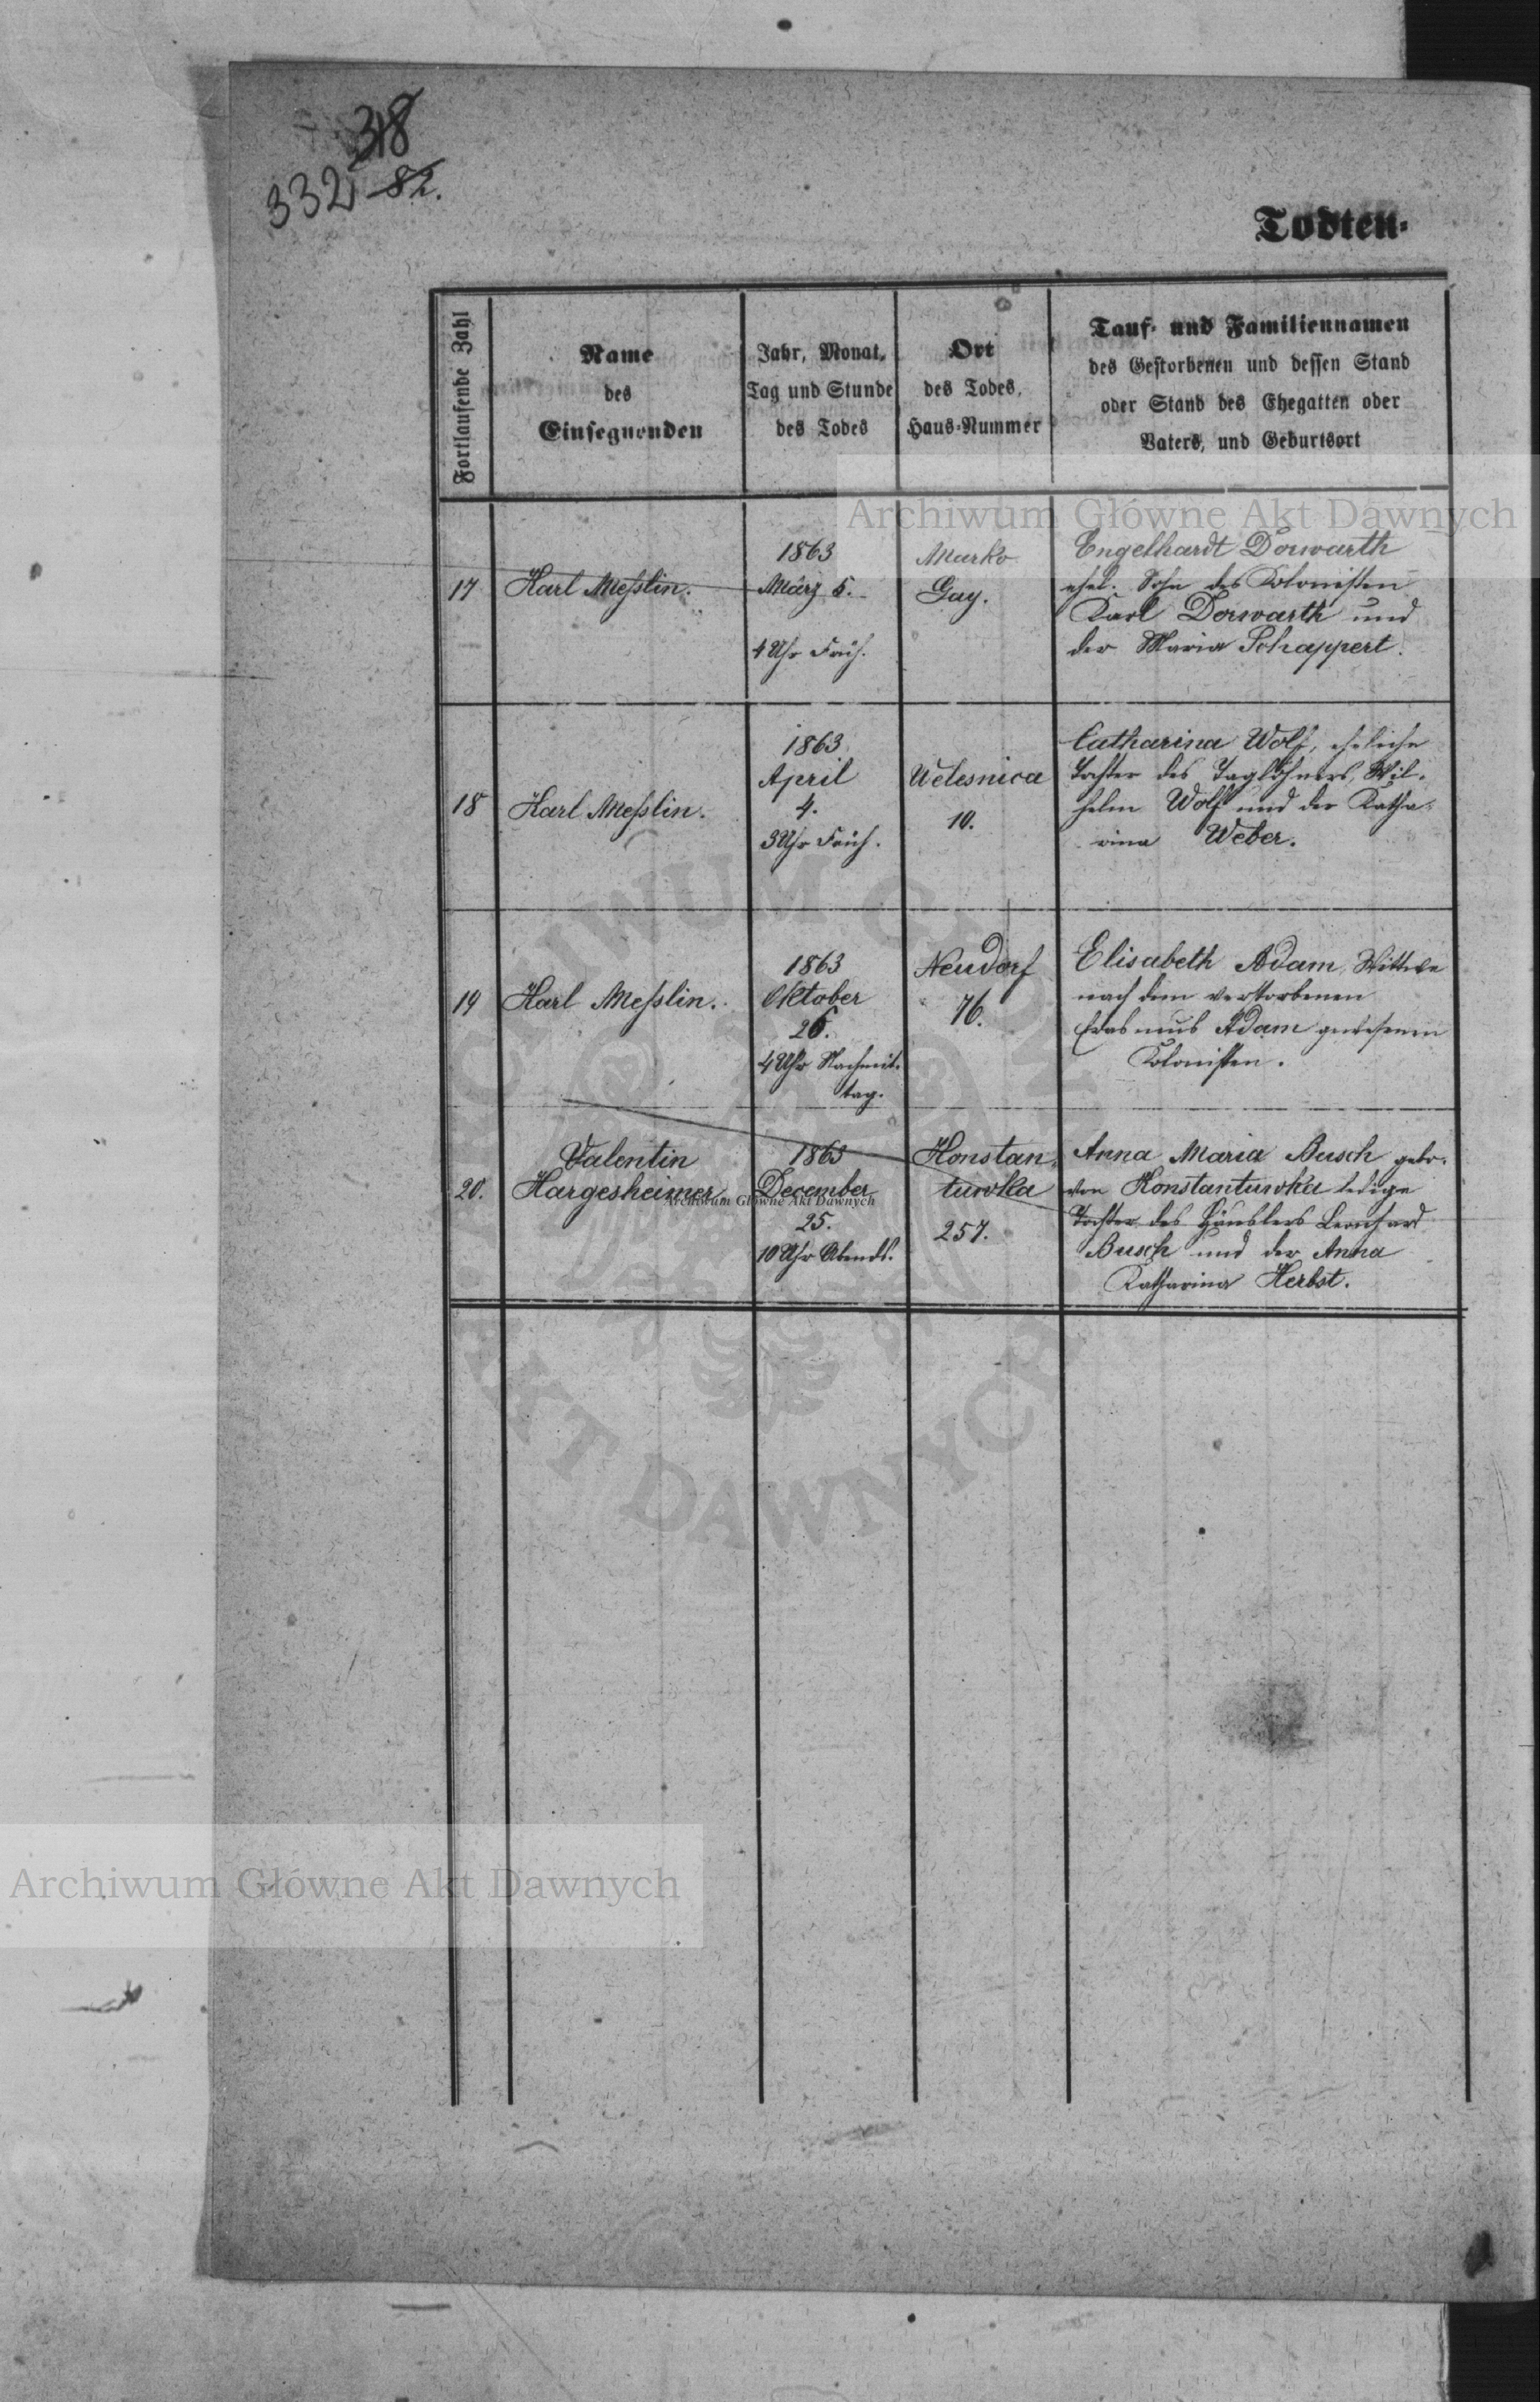 318
332 82.
Todten-
Fortlaufende Zahl
Name
des
Einsegnenden
Jahr, Monat,
Tag und Stunde
des Todes
Ort
des Todes,
Haus-Nummer
Tauf- und Familiennamen
des Gestorbenen und dessen Stand
oder Stand des Ehegatten oder
Vaters, und Geburtsort
Archiwum Główne Akt Dawnych
17
Karl Meſslin.
1863
März 5.
4 Uhr Früh.
Marko
Gay.
Engelhardt Dorwarth
ehel. Sohn des Kolonisten
Karl Dorwarth und
der Maria Schappert.
18
Karl Meſslin.
1863
April
4.
3 Uhr Früh.
Welesnica
10.
Catharina Wolf, eheliche
Tochter des Taglöhners Wil-
helm Wolf und der Katha-
rina Weber.
19
Karl Meſslin.
1863
Oktober
26.
4 Uhr Nachmit-
tag.
Neudorf
76.
Elisabeth Adam, Wittwe
nach dem verstorbenen
Erasmus Adam gewesenen
Kolonisten.
20.
Valentin
Hargesheimer
1863
December
25.
10 Uhr Abends.
Konstan-
tuwka
257.
Anna Maria Busch gebo-
von Konstantuwka ledige
Tochter des Häuslers Leonhard
Busch und der Anna
Katharina Herbst.
Archiwum Główne Akt Dawnych
ARCHIWUM GŁÓWNE
AKT DAWNYCH
Archiwum Główne Akt Dawnych